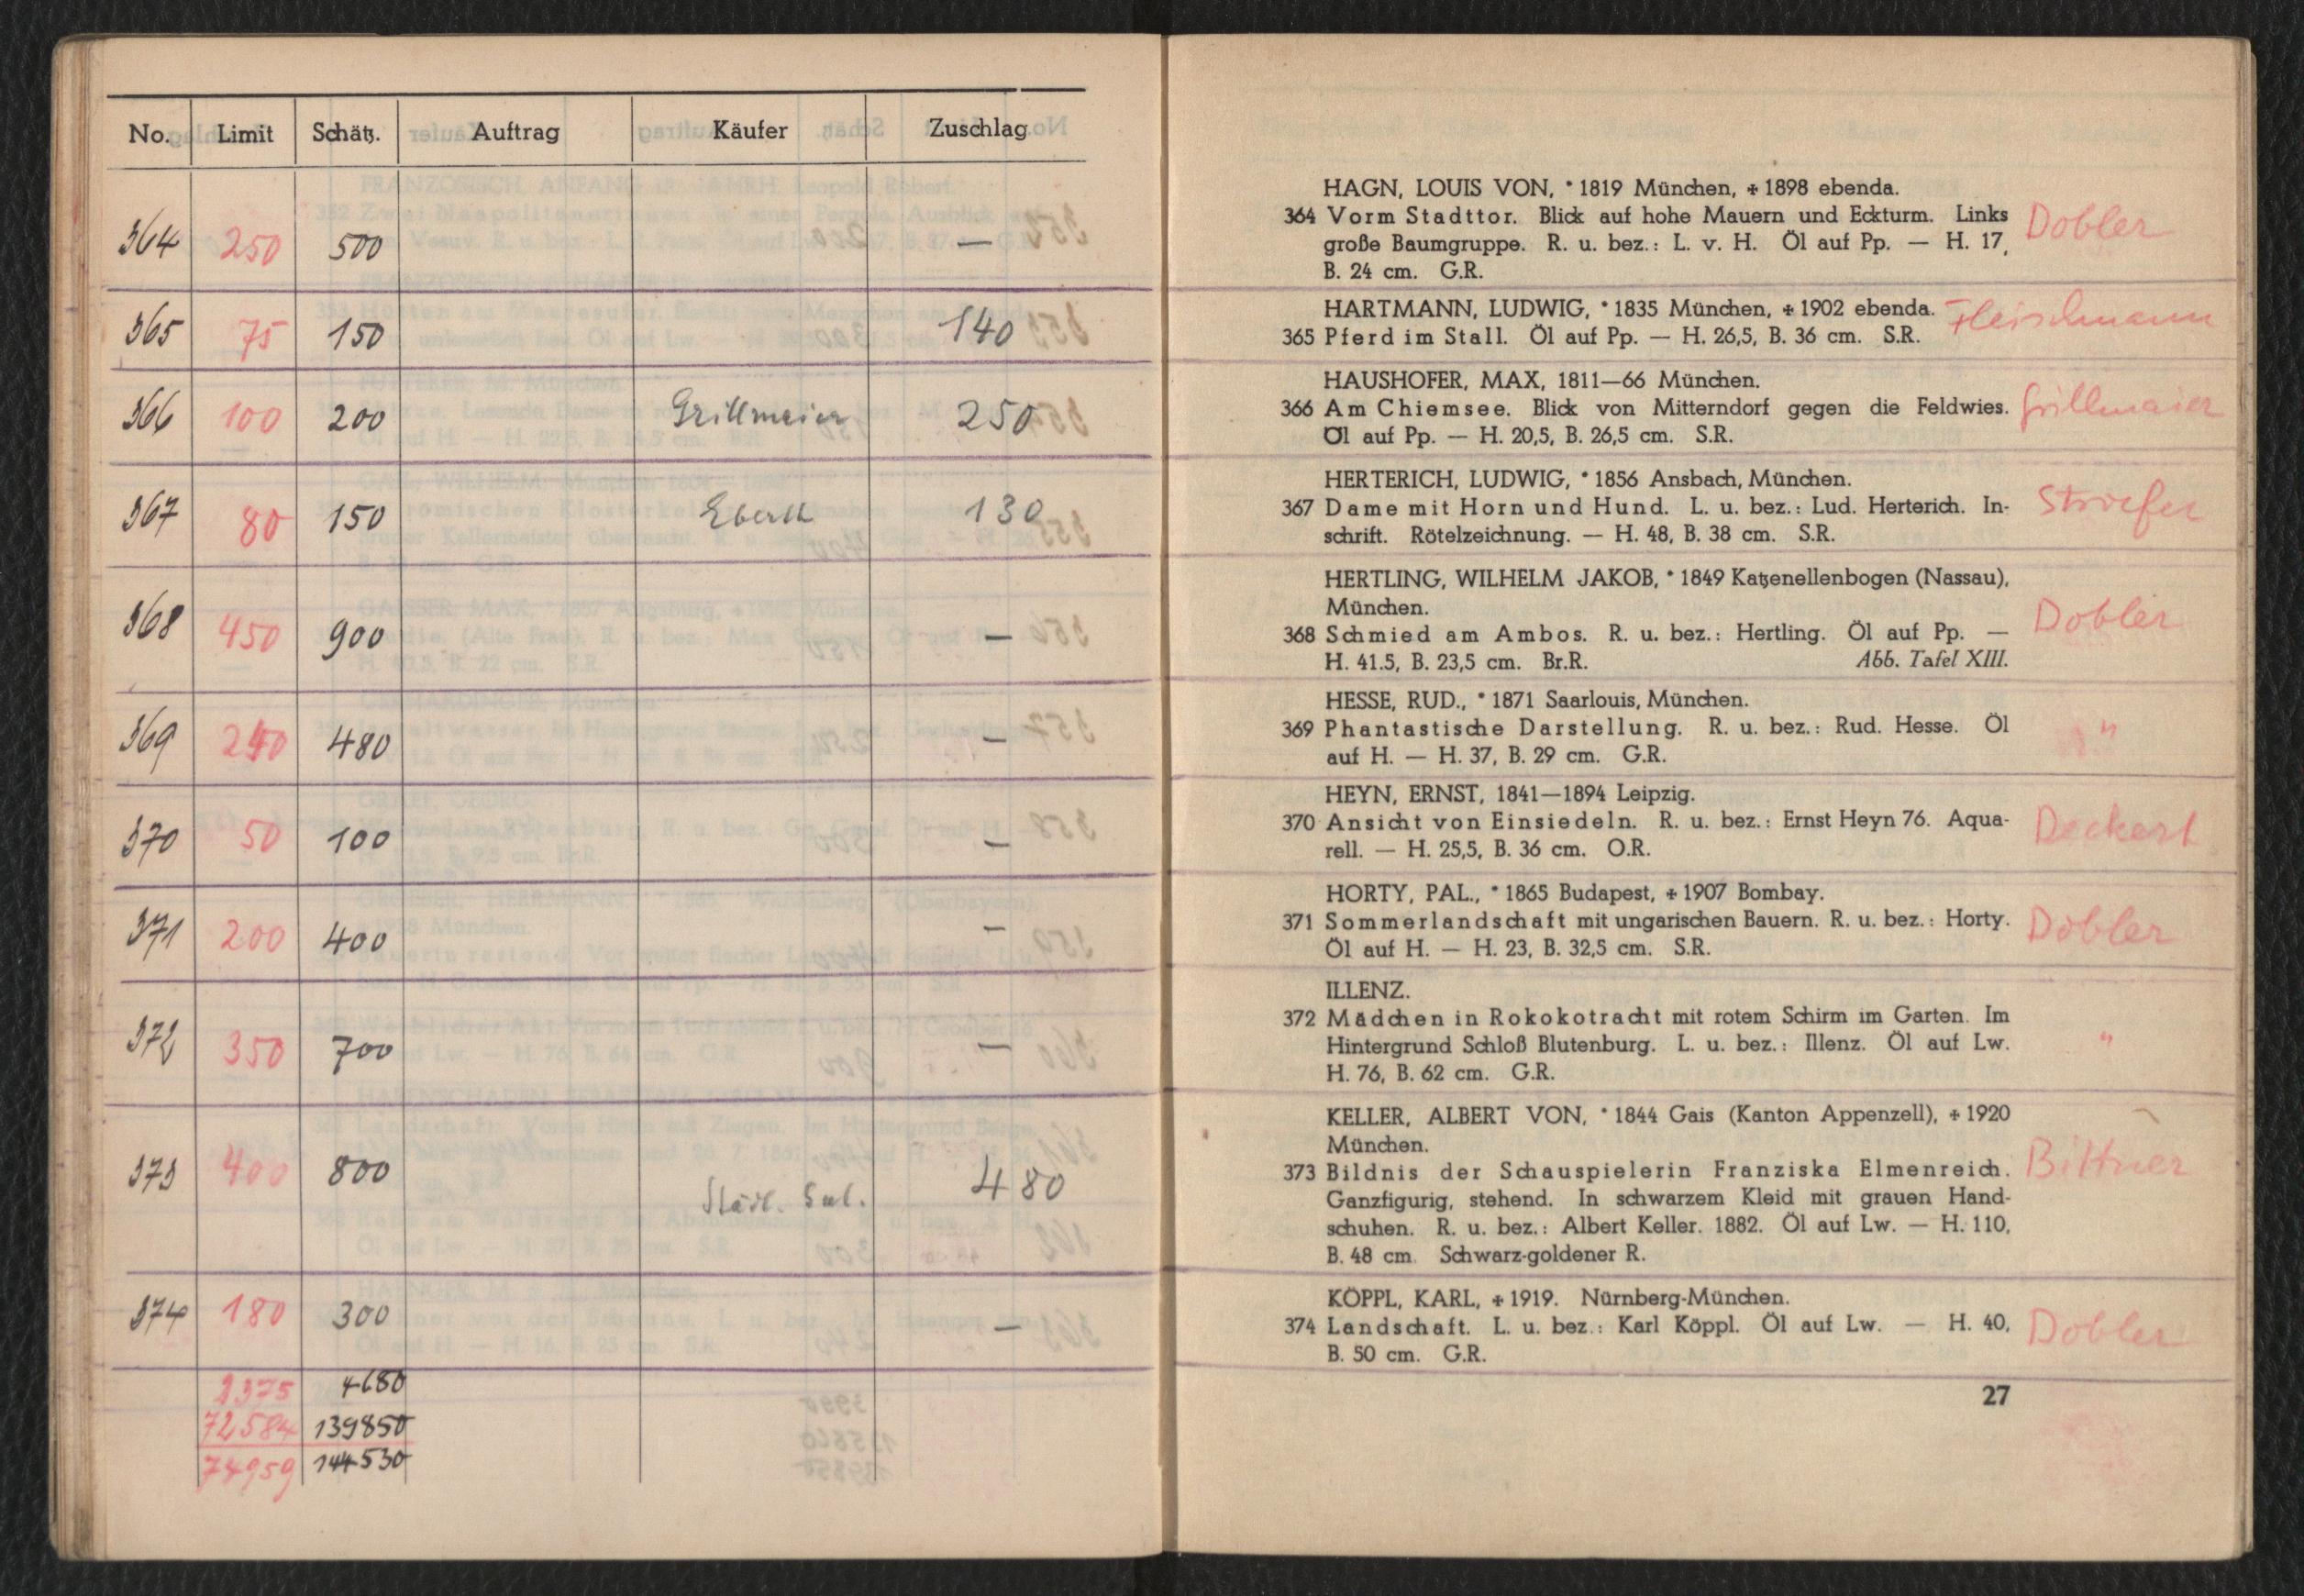 No. Limit Schätz. Auftrag Käufer Zuschlag
364 250 500 —
365 75 150 140
366 100 200 Grillmeier 250
367 80 150 Eberth 130
368 450 900 —
369 240 480 —
370 50 100 —
371 200 400 —
372 350 700 —
373 400 800 480
374 180 300 —
2375 4680
72584 139850
74959 144530
HAGN, LOUIS VON, *1819 München, + 1898 ebenda.
364 Vorm Stadttor. Blick auf hohe Mauern und Eckturm. Links Dobler
große Baumgruppe. R. u. bez.: L. v. H. Öl auf Pp. — H. 17,
B. 24 cm. G.R.
HARTMANN, LUDWIG, *1835 München, + 1902 ebenda. Fleischmann
365 Pferd im Stall. Öl auf Pp. — H. 26,5, B. 36 cm. S.R.
HAUSHOFER, MAX, 1811—66 München.
366 Am Chiemsee. Blick von Mitterndorf gegen die Feldwies. Grillmaier
Öl auf Pp. — H. 20,5, B. 26,5 cm. S.R.
HERTERICH, LUDWIG, *1856 Ansbach, München.
367 Dame mit Horn und Hund. L. u. bez.: Lud. Herterich. In-
schrift. Rötelzeichnung. — H. 48, B. 38 cm. S.R.
HERTLING, WILHELM JAKOB, *1849 Katzenellenbogen (Nassau),
München. Dobler
368 Schmied am Ambos. R. u. bez.: Hertling. Öl auf Pp. —
H. 41.5, B. 23,5 cm. Br.R. Abb. Tafel XIII.
HESSE, RUD., *1871 Saarlouis, München.
369 Phantastische Darstellung. R. u. bez.: Rud. Hesse. Öl "
auf H. — H. 37, B. 29 cm. G.R.
HEYN, ERNST, 1841—1894 Leipzig.
370 Ansicht von Einsiedeln. R. u. bez.: Ernst Heyn 76. Aqua- Deckert
rell. — H. 25,5, B. 36 cm. O.R.
HORTY, PAL., *1865 Budapest, + 1907 Bombay.
371 Sommerlandschaft mit ungarischen Bauern. R. u. bez.: Horty. Dobler
Öl auf H. — H. 23, B. 32,5 cm. S.R.
ILLENZ.
372 Mädchen in Rokokotracht mit rotem Schirm im Garten. Im
Hintergrund Schloß Blutenburg. L. u. bez.: Illenz. Öl auf Lw. "
H. 76, B. 62 cm. G.R.
KELLER, ALBERT VON, *1844 Gais (Kanton Appenzell), + 1920
München.
373 Bildnis der Schauspielerin Franziska Elmenreich. Bittner
Ganzfigurig, stehend. In schwarzem Kleid mit grauen Hand-
schuhen. R. u. bez.: Albert Keller. 1882. Öl auf Lw. — H. 110,
B. 48 cm. Schwarz-goldener R.
KÖPPL, KARL, + 1919. Nürnberg-München.
374 Landschaft. L. u. bez.: Karl Köppl. Öl auf Lw. — H. 40, Dobler
B. 50 cm. G.R.
27